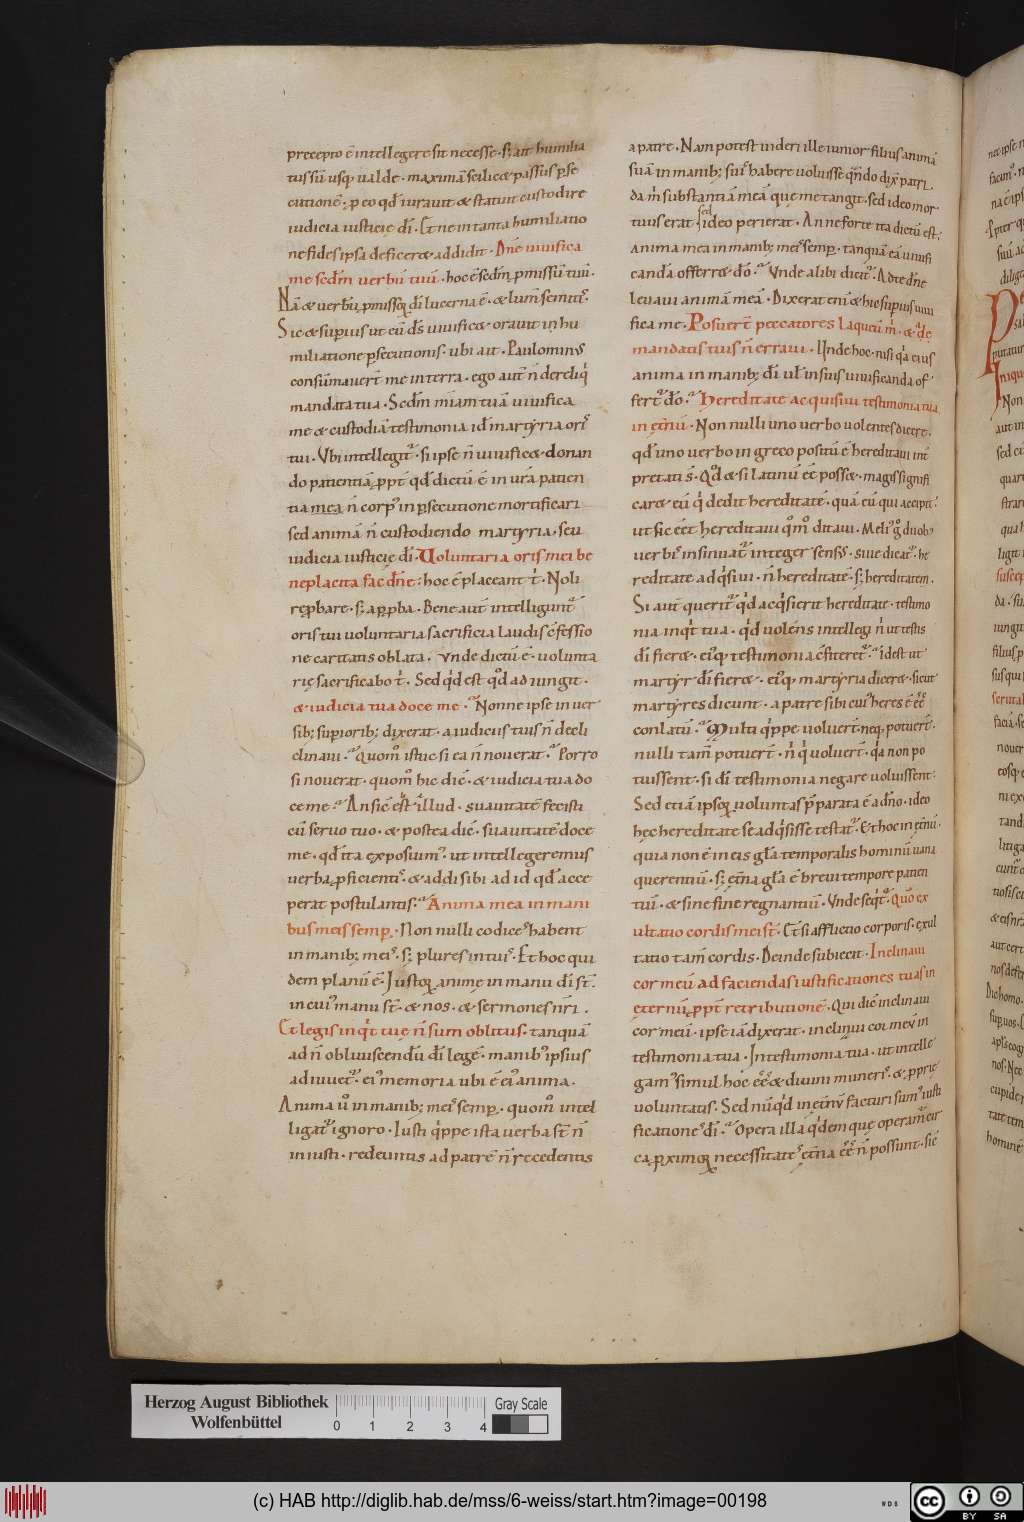 precepto ē intellegere sit necesse · s; ait humilia
tus sū usq; ualde · maximā scilicet passus p̱se
cutionē · p̱ eo qđ iurauit & statuit custodire
iudicia iusticię dī · Et ne in tanta humiliatio
ne fides ipsa deficeret addidit · Dn̄e uiuifica
me scd̄m uerbū tuū · hoc ē scd̄m p̱missū tuū ·
Nā & uerbū p̱missoꝝ dī lucerna ē · & lum̄ semitis ·
Sic & superius ut eū dn̄s uiuificet orauit in hu
miliatione p̱secutionis · ubi ait · Paulominus
consūmauer̄t me in terra · ego aut̄ n̄ dereliq̇
mandata tua · Scd̄m mīam tuā uiuifica
me & custodiā testimonia id ē martyria oris
tui · Vbi intellegit᷑ · si ipse n̄ uiuificet donan
do patientiā, p̱pt̄ qđ dictū ē in ur̄a patien
tia mea n̄ corpus in p̱secutione mortificari
sed animā n̄ custodiendo martyria · seu
iudicia iusticię dī · Voluntaria oris mei be
neplacita fac dn̄e · hoc ē placeant t̄ · Noli
rep̱bare · s; app̱ba · Bene aut̄ intelligunt᷑
oris tui uoluntaria sacrificia laudis cf̄essio
ne caritatis oblata · Vnde dictū ē · uolunta
rię sacrificabo t̄ · Sed qđ est qđ adiungit ·
& iudicia tua doce me · Nonne ipse in uer
sib; superiorib; dixerat · a iudiciis tuis n̄ decli
naui · Quom̄ istuc si ea n̄ nouerat · Porro
si nouerat · quom̄ hic dic̄ · & iudicia tua do
ce me · An sic ēst illud · suauitatē fecisti
cū seruo tuo · & postea dic̄ · suauitatē doce
me · qđ ita exposuim᷒ · ut intellegeremus
uerba p̱ficientis · & addi sibi ad id qđ acce
perat postulantis · Anima mea in mani
bus meis semp̱ · Non nulli codices habent
in manib; meis · s; plures in tuis · Et hoc qui
dem planū ē · Iustoꝝ animę in manu dī st̄ ·
in cuius manu st̄ · & nos · & sermones nr̄i ·
Et legis inq̇t tuę n̄ sum oblitus · tanquā
ad n̄ obliuiscendū dī legē · manib᷒ ipsius
adiuuet᷑ · eius memoria ubi ē eius anima ·
Anima ū in manib; meis semp̱ · quom̄ intel
ligat᷑ ignoro · Iusti q̇ppe ista uerba st̄ n̄
iniusti · redeuntis ad patrē n̄ recedentis
a patre · Nam potest uideri ille iunior filius animā
suā in manib; suis habere uoluisse quando dix̄ patri ·
da m̄ substantiā meā que me tangit · sed ideo mor
tuus erat sed ideo perierat · An ne forte ita dictū est ·
anima mea in manib; meis semp̱ · tanquā eā uiuifi
candā offerret dō · Vnde alibi dicit᷑ · Ad te dn̄e
leuaui animā meā · Dixerat enī & hic superius uiui
fica me · Posuer̄t peccatores laqueū m̄ · & a de
mandatis tuis n̄ erraui · Unde hoc · nisi q̇a eius
anima in manib; dī uī in suis uiuificanda of
fert᷑ dō · Hereditate acquisiui testimonia tua
in et̄nū · Non nulli uno uerbo uolentes dicere ·
qđ uno uerbo in greco positū ē hereditaui int̄
pretati s̄ · Qđ & si latinū eē posset · magis signifi
caret eū q̇ dedit hereditatē · quā eū qui accipit ·
ut sic eēt hereditaui quōm ditaui · Melius g̊ duob᷒
uerbis insinuat᷑ integer sensus · siue dicat᷑ · he
reditate adq̇siui · n̄ hereditatē · s; hereditatem ·
Si aut̄ querit᷑ qđ acq̇sierit hereditate · testimo
nia inq̇t tua · qđ uolens intellegi n̄ ut testis
dī fieret · eiusq; testimonia cf̄iteret᷑ · id est ut
martyr dī fieret · eiusq; martyria diceret · sicut
martyres dicunt · a patre sibi cuius heres ē ēē
conlatū · Multi q̇ppe uoluer̄t neq; potuer̄t ·
nulli tam̄ potuer̄t · n̄ q̇ uoluer̄t · q̇a non po
tuissent · si dī testimonia negare uoluissent ·
Sed etiā ipsoꝝ uoluntas p̄parata ē a dn̄o · ideo
hec hereditate se adq̇sisse testat᷑ · Et hoc in et̄nū ·
quia non ē in eis gl̄a temporalis hominū uana
querentiū · s; et̄na gl̄a ē breui tempore patien
tiū · & sine fine regnantiū · Vnde seqt᷑ · Quō ex
ultatio cordis mei st̄ · Et si afflictio corporis · exul
tatio tam̄ cordis · Deinde subiecit · Inclinaui
cor meū ad faciendas iustificationes tuas in
eternū, p̱pt̄ retributionē · Qui dic̄ inclinaui
cor meū · ipse iā dixerat · inclina cor meū in
testimonia tua · In testimonia tua · ut intelle
gam᷒ simul hoc ēē & diuini muneris · & p̱prię
uoluntatis · Sed nūqđ in et̄nū facturi sum᷒ iusti
ficationes dī · Opera illa q̇dem quę operam᷑ cir
ca p̱ximoꝝ necessitates et̄na ēē n̄ possunt · sic
Herzog August Bibliothek
Wolfenbüttel
Gray Scale
0 1 2 3 4
(c) HAB http://diglib.hab.de/mss/6-weiss/start.htm?image=00198
cc BY SA